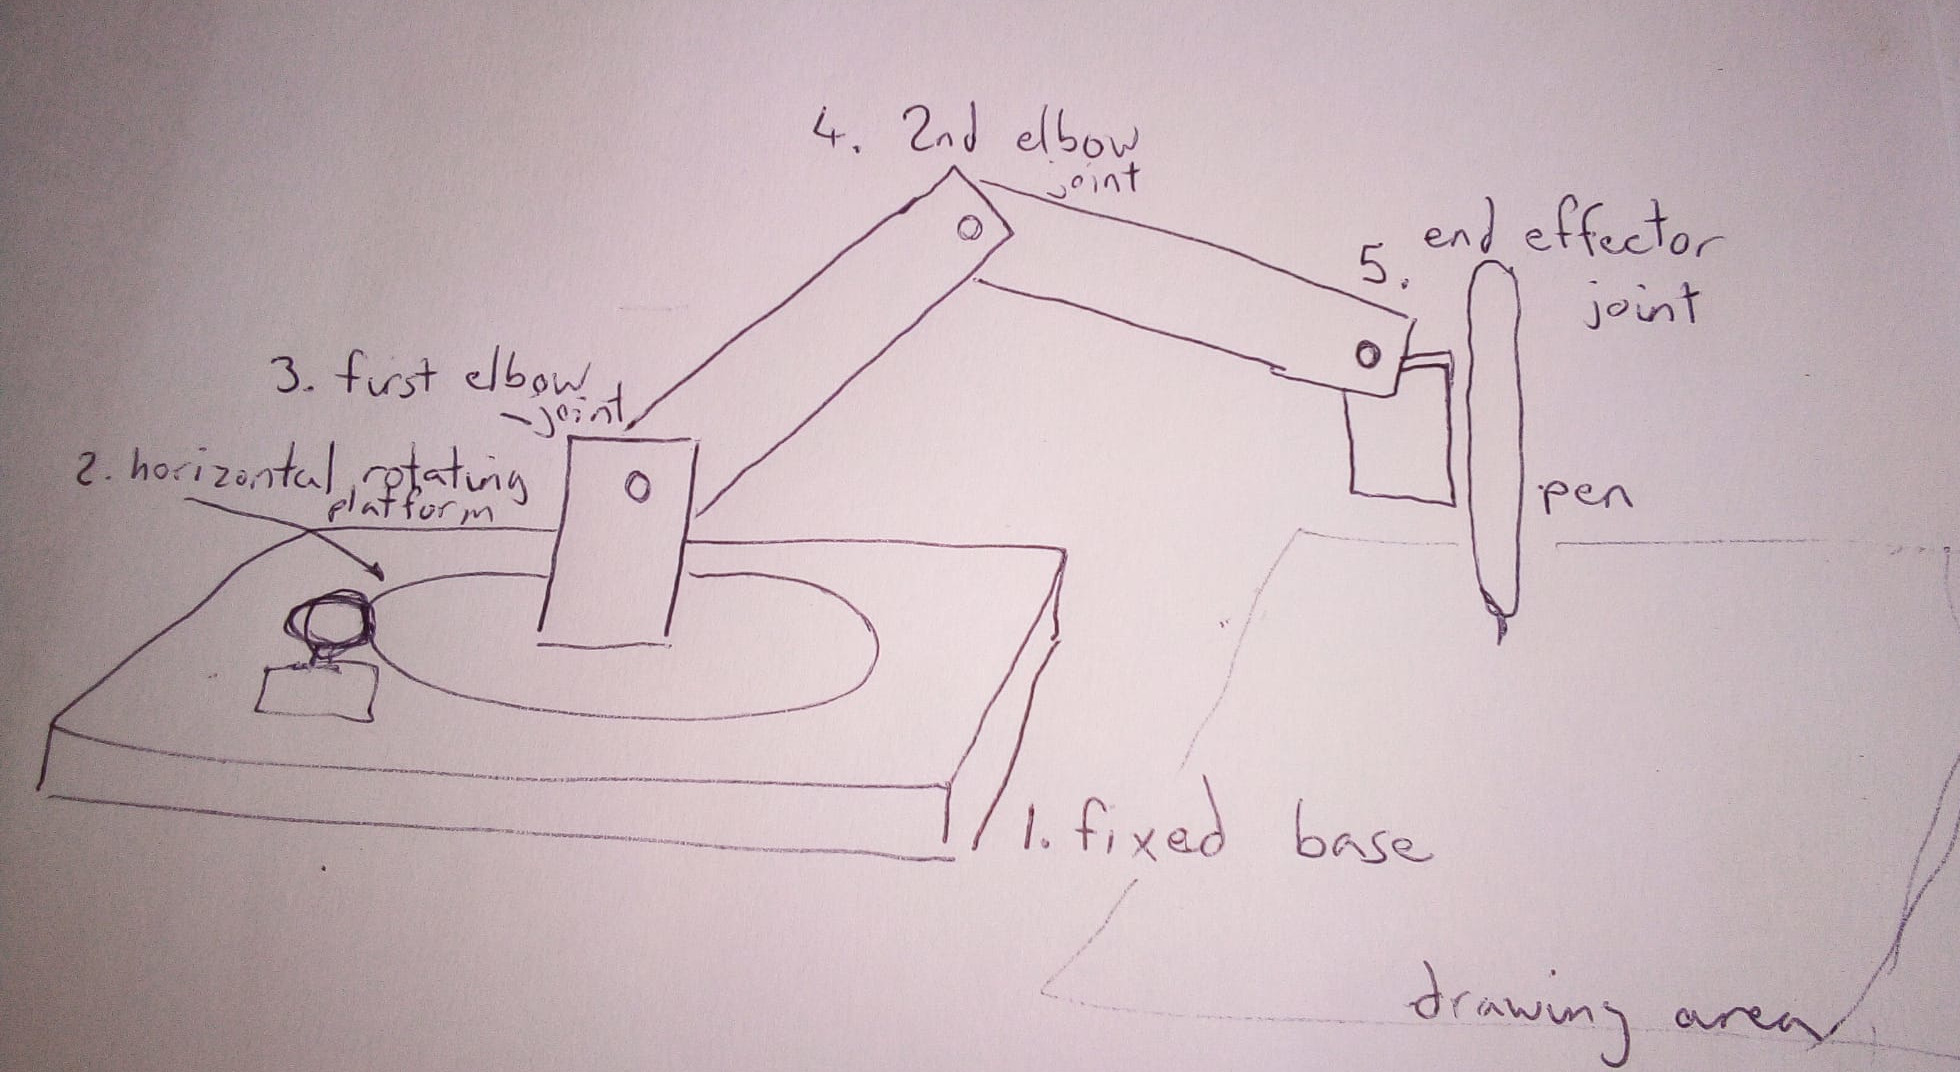 4. 2nd elbow
joint
5. end effector
joint
3. first elbow
joint
2. horizontal rotating
platform
pen
1. fixed base
drawing area